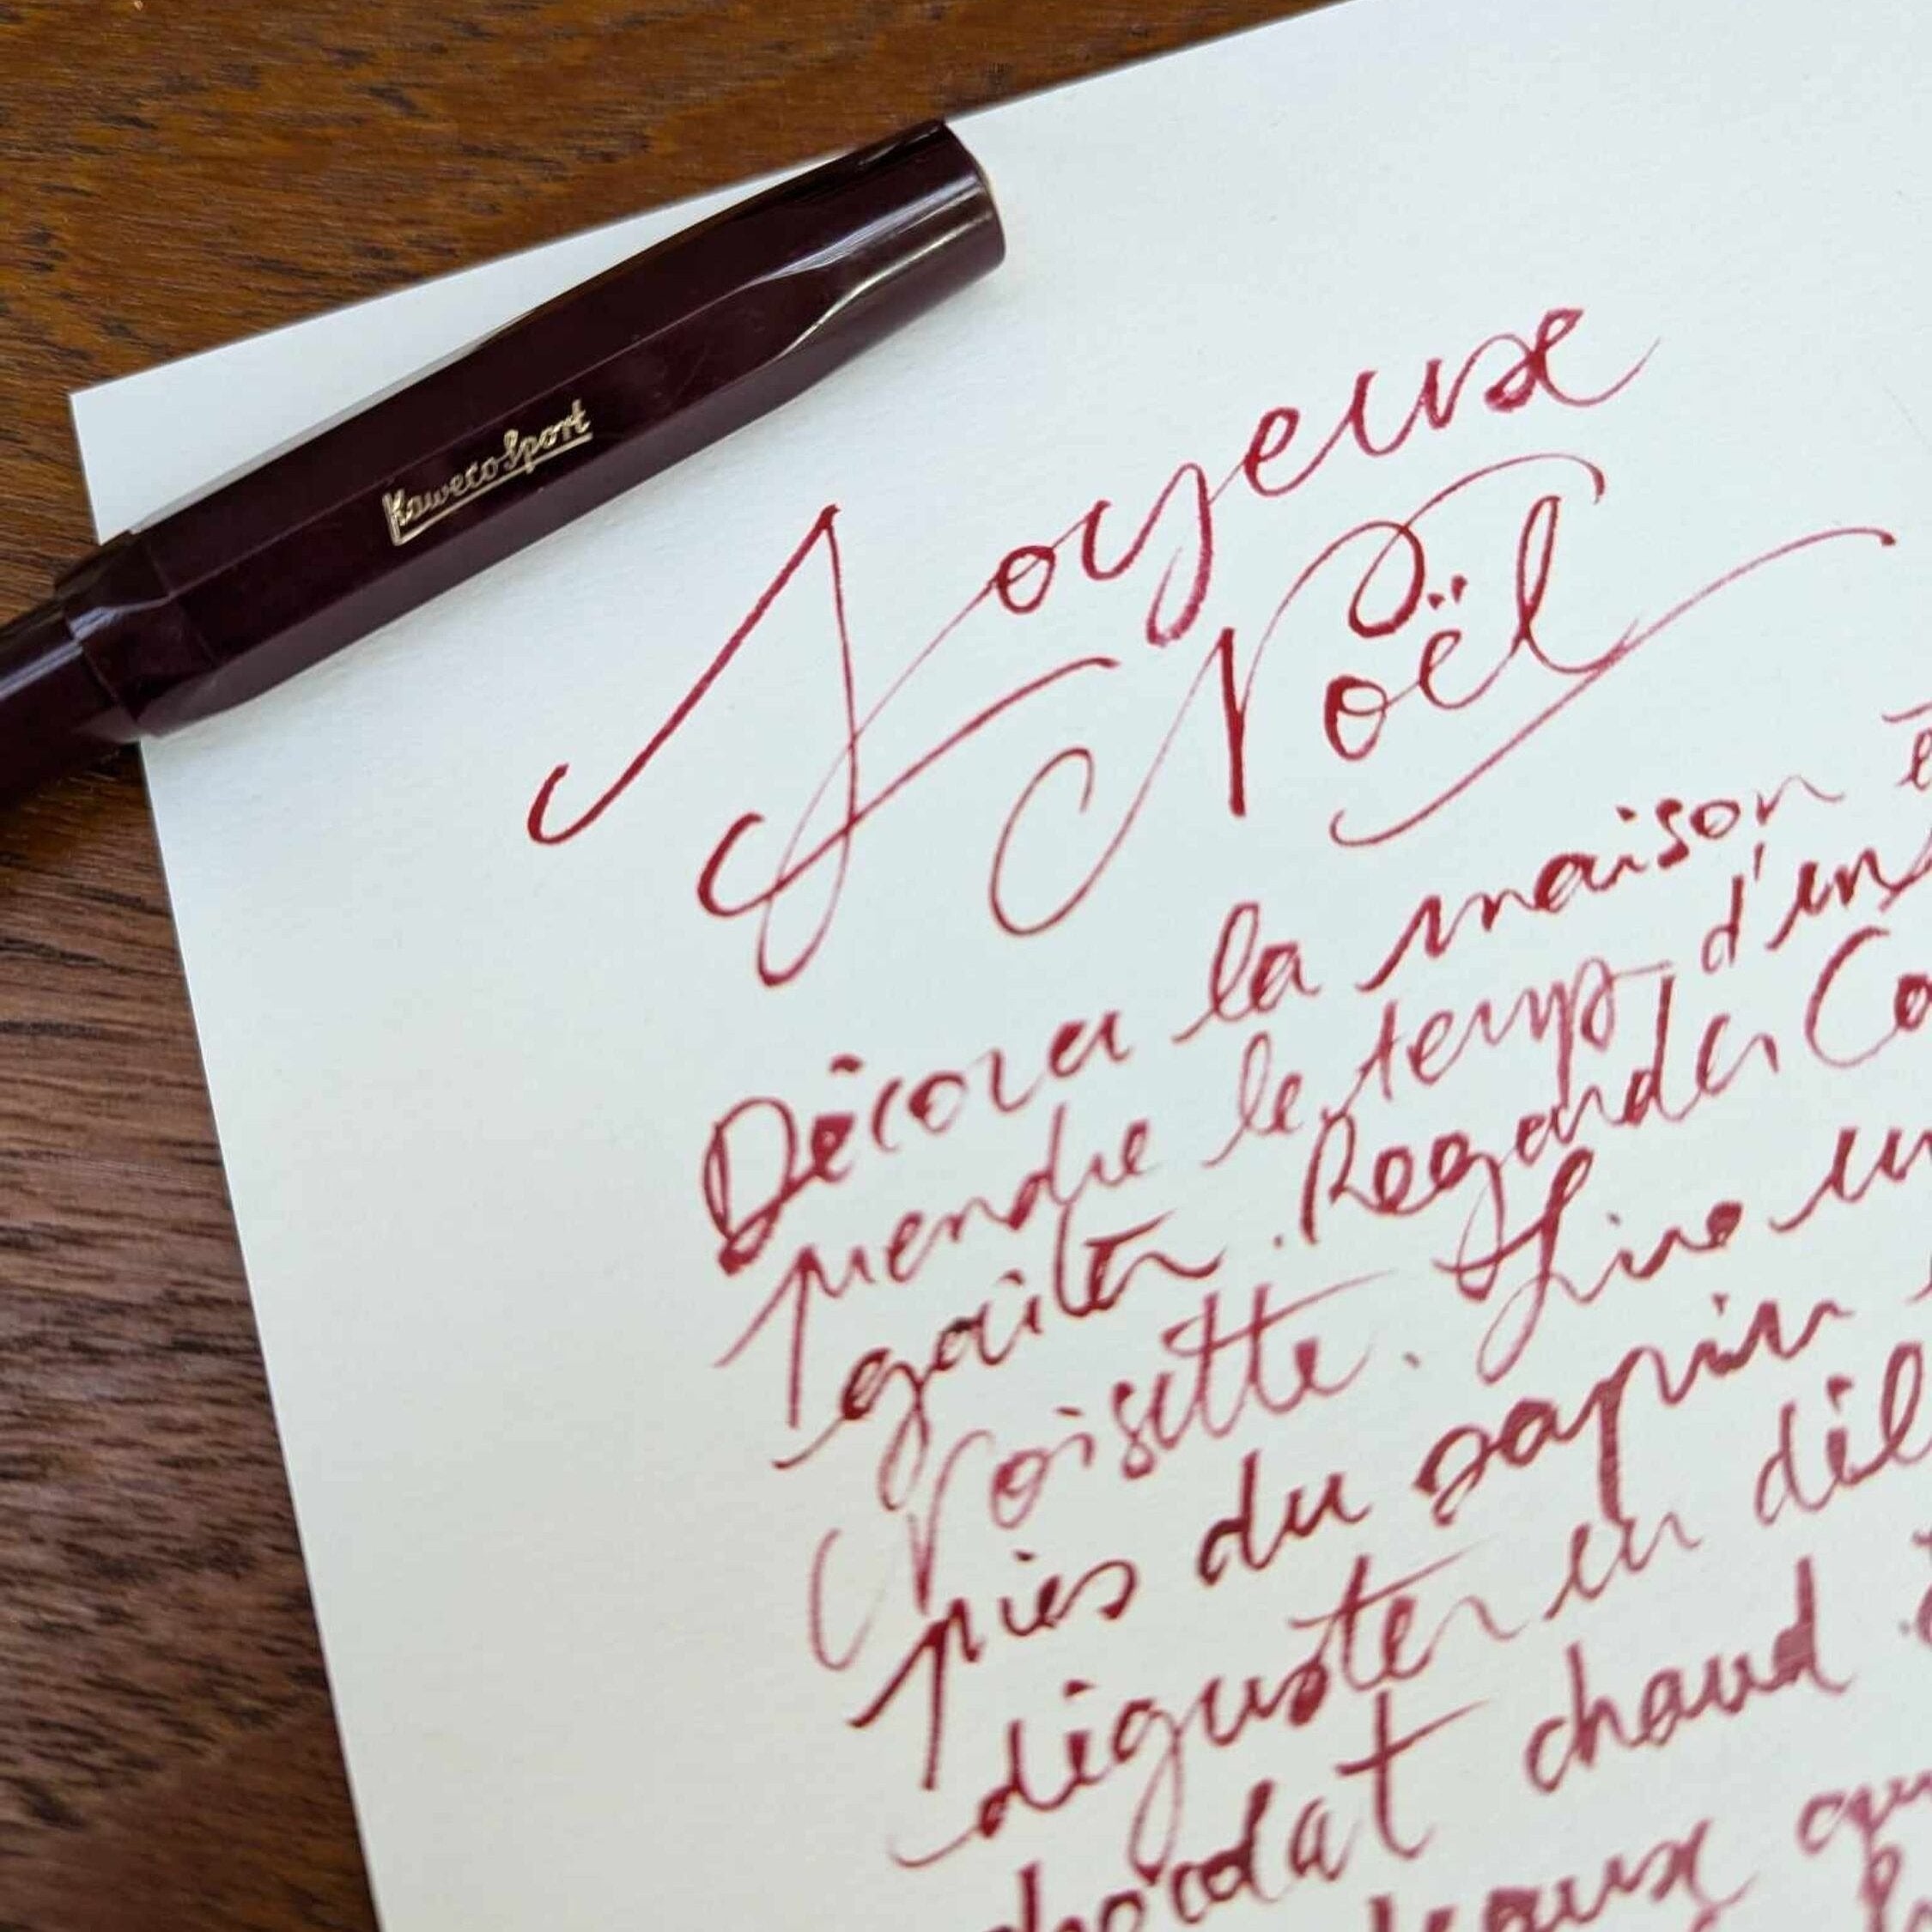 Kaweco Sport
Joyeux
Noël
Décorer la maison
prendre le temps
goûter. Regarder
Noisette. Lire
près du sapin
déguster un
chocolat chaud